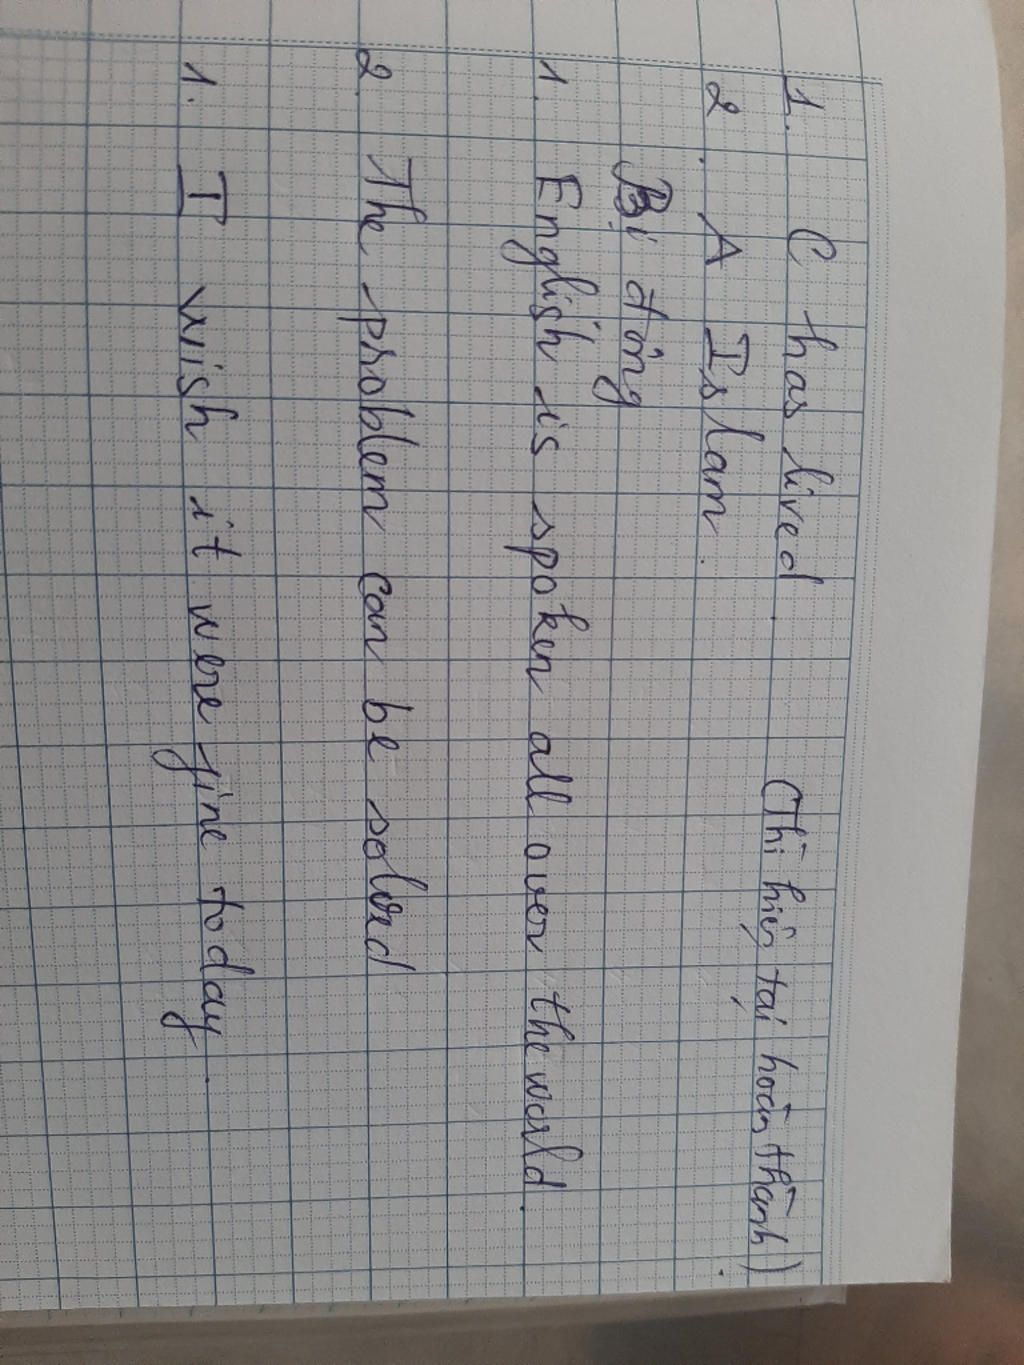 1. C has lived. (Thì hiện tại hoàn thành).
2. A Islam.
Bị động
1. English is spoken all over the world.
2. The problem can be solved
1. I wish it were fine today.